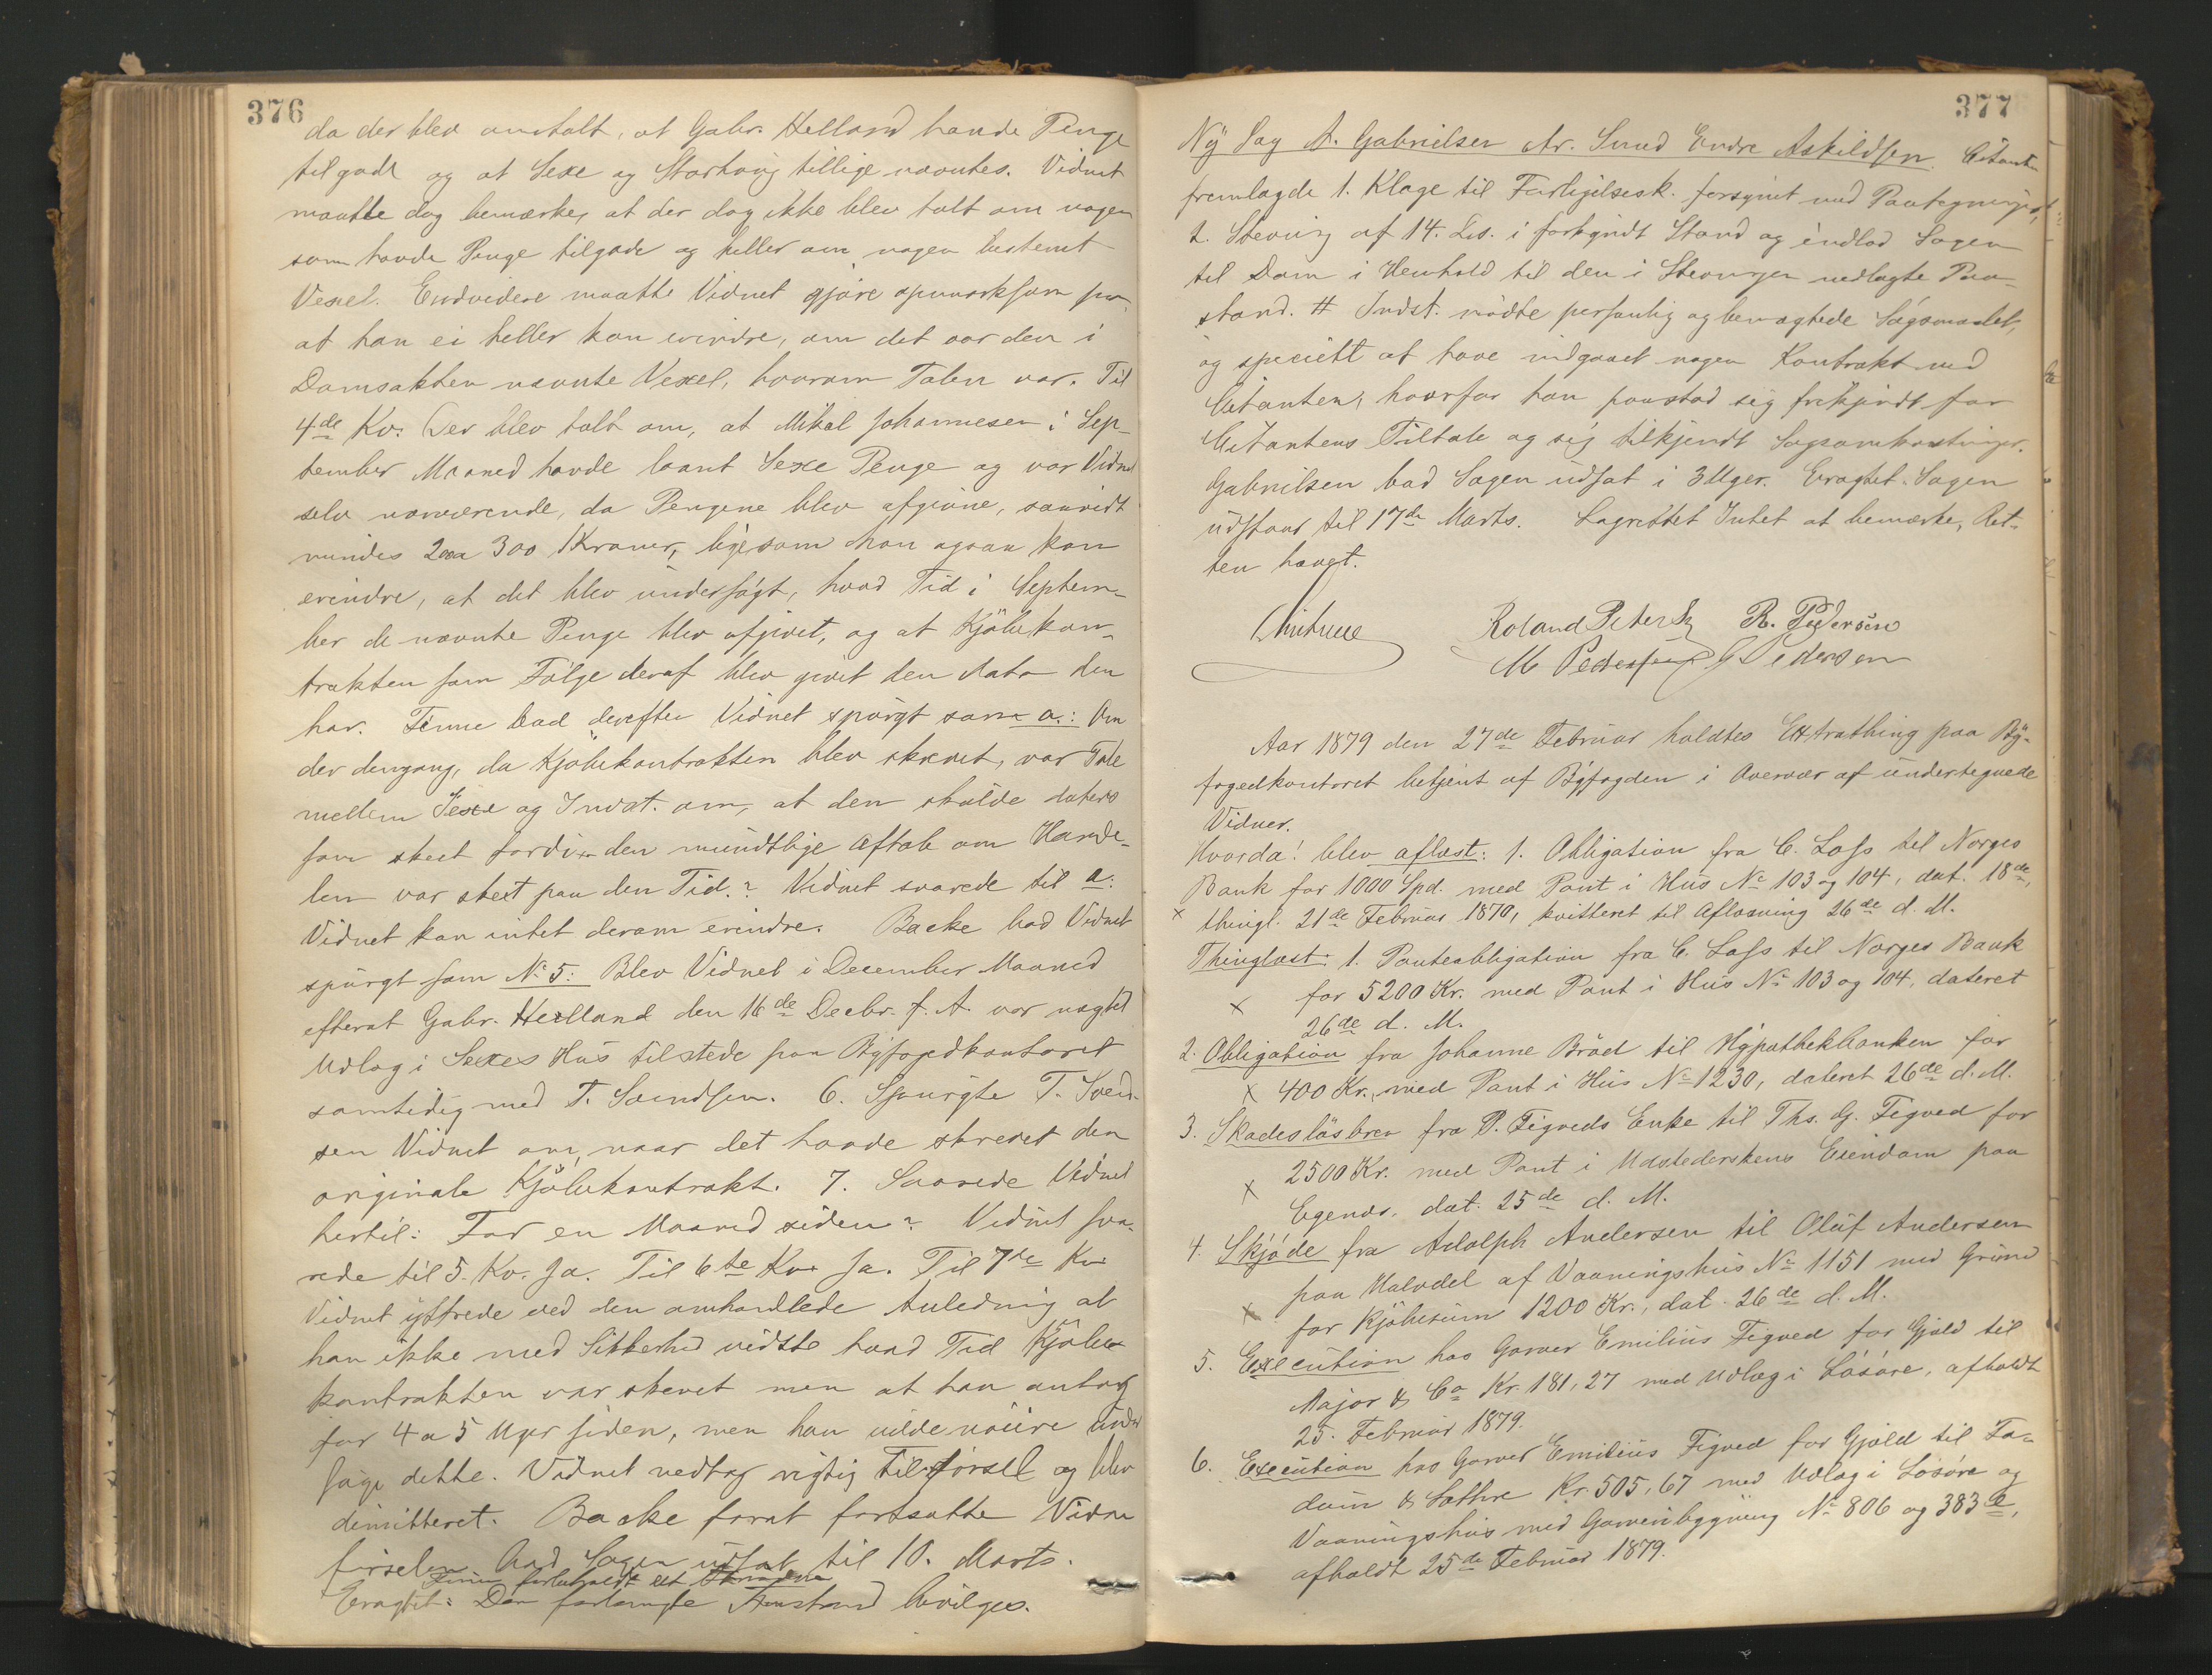 376
da der blev omtalt, at Gabr. Helland havde Penge
tilgode og at Sexe og Storhaug tillige nævntes. Vidnet
maatte dog bemærke, at der dog ikke blev talt om nogen
som havde Penge tilgode og heller om nogen bestemt
Vexel. Endvidere maatte Vidnet gjøre opmærksom paa
at han ei heller kan erindre, om det var den i
Domsakten nævnte Vexel, hvorom Talen var. Til
4de Kv: Der blev talt om, at Mikal Johannesen i Sep-
tember Maaned havde laant Sexe Penge og var Vidnet
selv nærværende, da Pengene blev afgivne, saavidt
mindes 2 a 300 Kroner, ligesom han ogsaa kan
erindre, at det blev undersøgt, hvad Tid i Septem-
ber de nævnte Penge blev afgivet, og at Kjøbekon-
trakten som Følge deraf blev givet den Dato den
har. Finne bad derefter Vidnet spurgt som a.: Om
der dengang, da Kjøbekontrakten blev skrevet, var Tale
mellem Sexe og Indst. om, at den skulde dateres
som skeet fordi den mundtlige Aftale om Hande-
len var skeet paa den Tid.? Vidnet svarede til a:
Vidnet kan intet derom erindre. Backe bad Vidnet
spurgt som No 5: Blev Vidnet i December Maaned
efterat Gabr. Helland den 16de Decbr. f. A. var nægtet
Udlæg i Sexes Hus tilstede paa Byfogedkontoret
samtidig med T. Svendsen. 6. Spurgte T. Svend-
sen Vidnet om, naar det havde skrevet den
originale Kjøbekontrakt. 7. Svarede Vidnet
hertil: For en Maaned siden? Vidnet sva-
rede til 5. Kv. Ja. Til 6te Kv. Ja. Til 7de Kv
Vidnet yttrede ved den omhandlede Anledning at
han ikke med Sikkerhed vidste hvad Tid Kjøbe
kontrakten var skrevet men at han antog
for 4 a 5 Uger siden, men han vilde nøiere under
søge dette. Vidnet vedtog rigtig Tilførsel og blev
dimitteret. Backe forat fortsætte Vidne
førselen bad Sagen udsat til 10. Marts.
Finne forbeholdt sit
Eragtet: Den forlangte Anstand bevilges.
377
Ny Sag A. Gabrielsen Ctr. Smed Endre Askildsen. Citanten
fremlagde 1. Klage til Forligelsesk. forsynet med Paategninger,
2. Stevning af 14. Ds. i forkyndt Stand og indlod Sagen
til Dom i Henhold til den i Stevningen nedlagte Paa-
stand. # Indst. mødte personlig og benægtede Søgsmaalet,
og specielt at have indgaaet nogen Kontrakt med
Citanten, hvorfor han paastod sig frikjendt for
Citantens Tiltale og sig tilkjendt Sagsomkostninger.
Gabrielsen bad Sagen udsat i 3 Uger. Eragtet. Sagen
udstaar til 17de Marts. Lagrettet Intet at bemærke, Ret-
ten hævet.
Roland Peters R. Pedersen
M Pedersen G Pedersen
Aar 1879 den 27de Februar holdtes Extrathing paa By-
fogedkontoret betjent af Byfogden i Overvær af undertegnede
Vidner.
Hvorda! blev aflæst: 1. Obligation fra C. Lass til Norges
Bank for 1000 Spd. med Pant i Hus No 103 og 104, dat. 18de,
x thingl. 21de Februar 1870, kvitteret til Aflæsning 26de d. M.
Thinglæst: 1. Panteobligation fra C. Lass til Norges Bank
x for 5200 Kr. med Pant i Hus No 103 og 104, dateret
26de d. M.
2. Obligation fra Johanne Brød til Hypothekbanken for
x 400 Kr., med Pant i Hus No 1230, dateret 26de d. M.
3. Skadesløsbrev fra P. Figveds Enke til Ths. G. Figved for
x 2500 Kr. med Pant i Udstederskens Eiendom paa
Egenæs, dat. 25de d. M.
4. Skjøde fra Adolph Andersen til Oluf Andersen
paa Halvdel af Vaaningshus No 1151 med Grund
x for Kjøbesum 1200 Kr., dat. 26de d. M.
5. Execution hos Garver Emilius Figved for Gjæld til
Major & Co Kr. 181,27 med Udlæg i Løsøre, afholdt
25. Februar 1879.
6. Execution hos Garver Emilius Figved for Gjæld til Fa-
dum & Sæthre Kr. 505,67 med Udlæg i Løsøre og
Vaaningshus med Garveribygning No 806 og 383 e,
afholdt 25de Februar 1879.